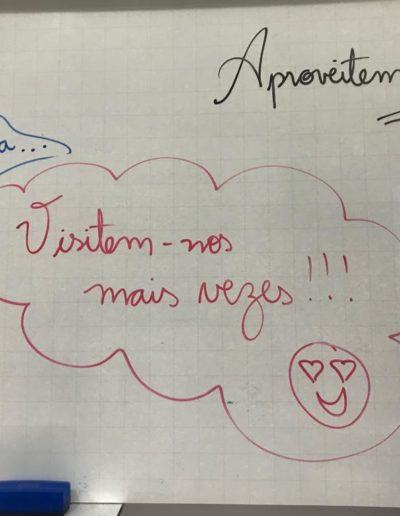 Aproveitem
a...
Visitem-nos
mais vezes!!!